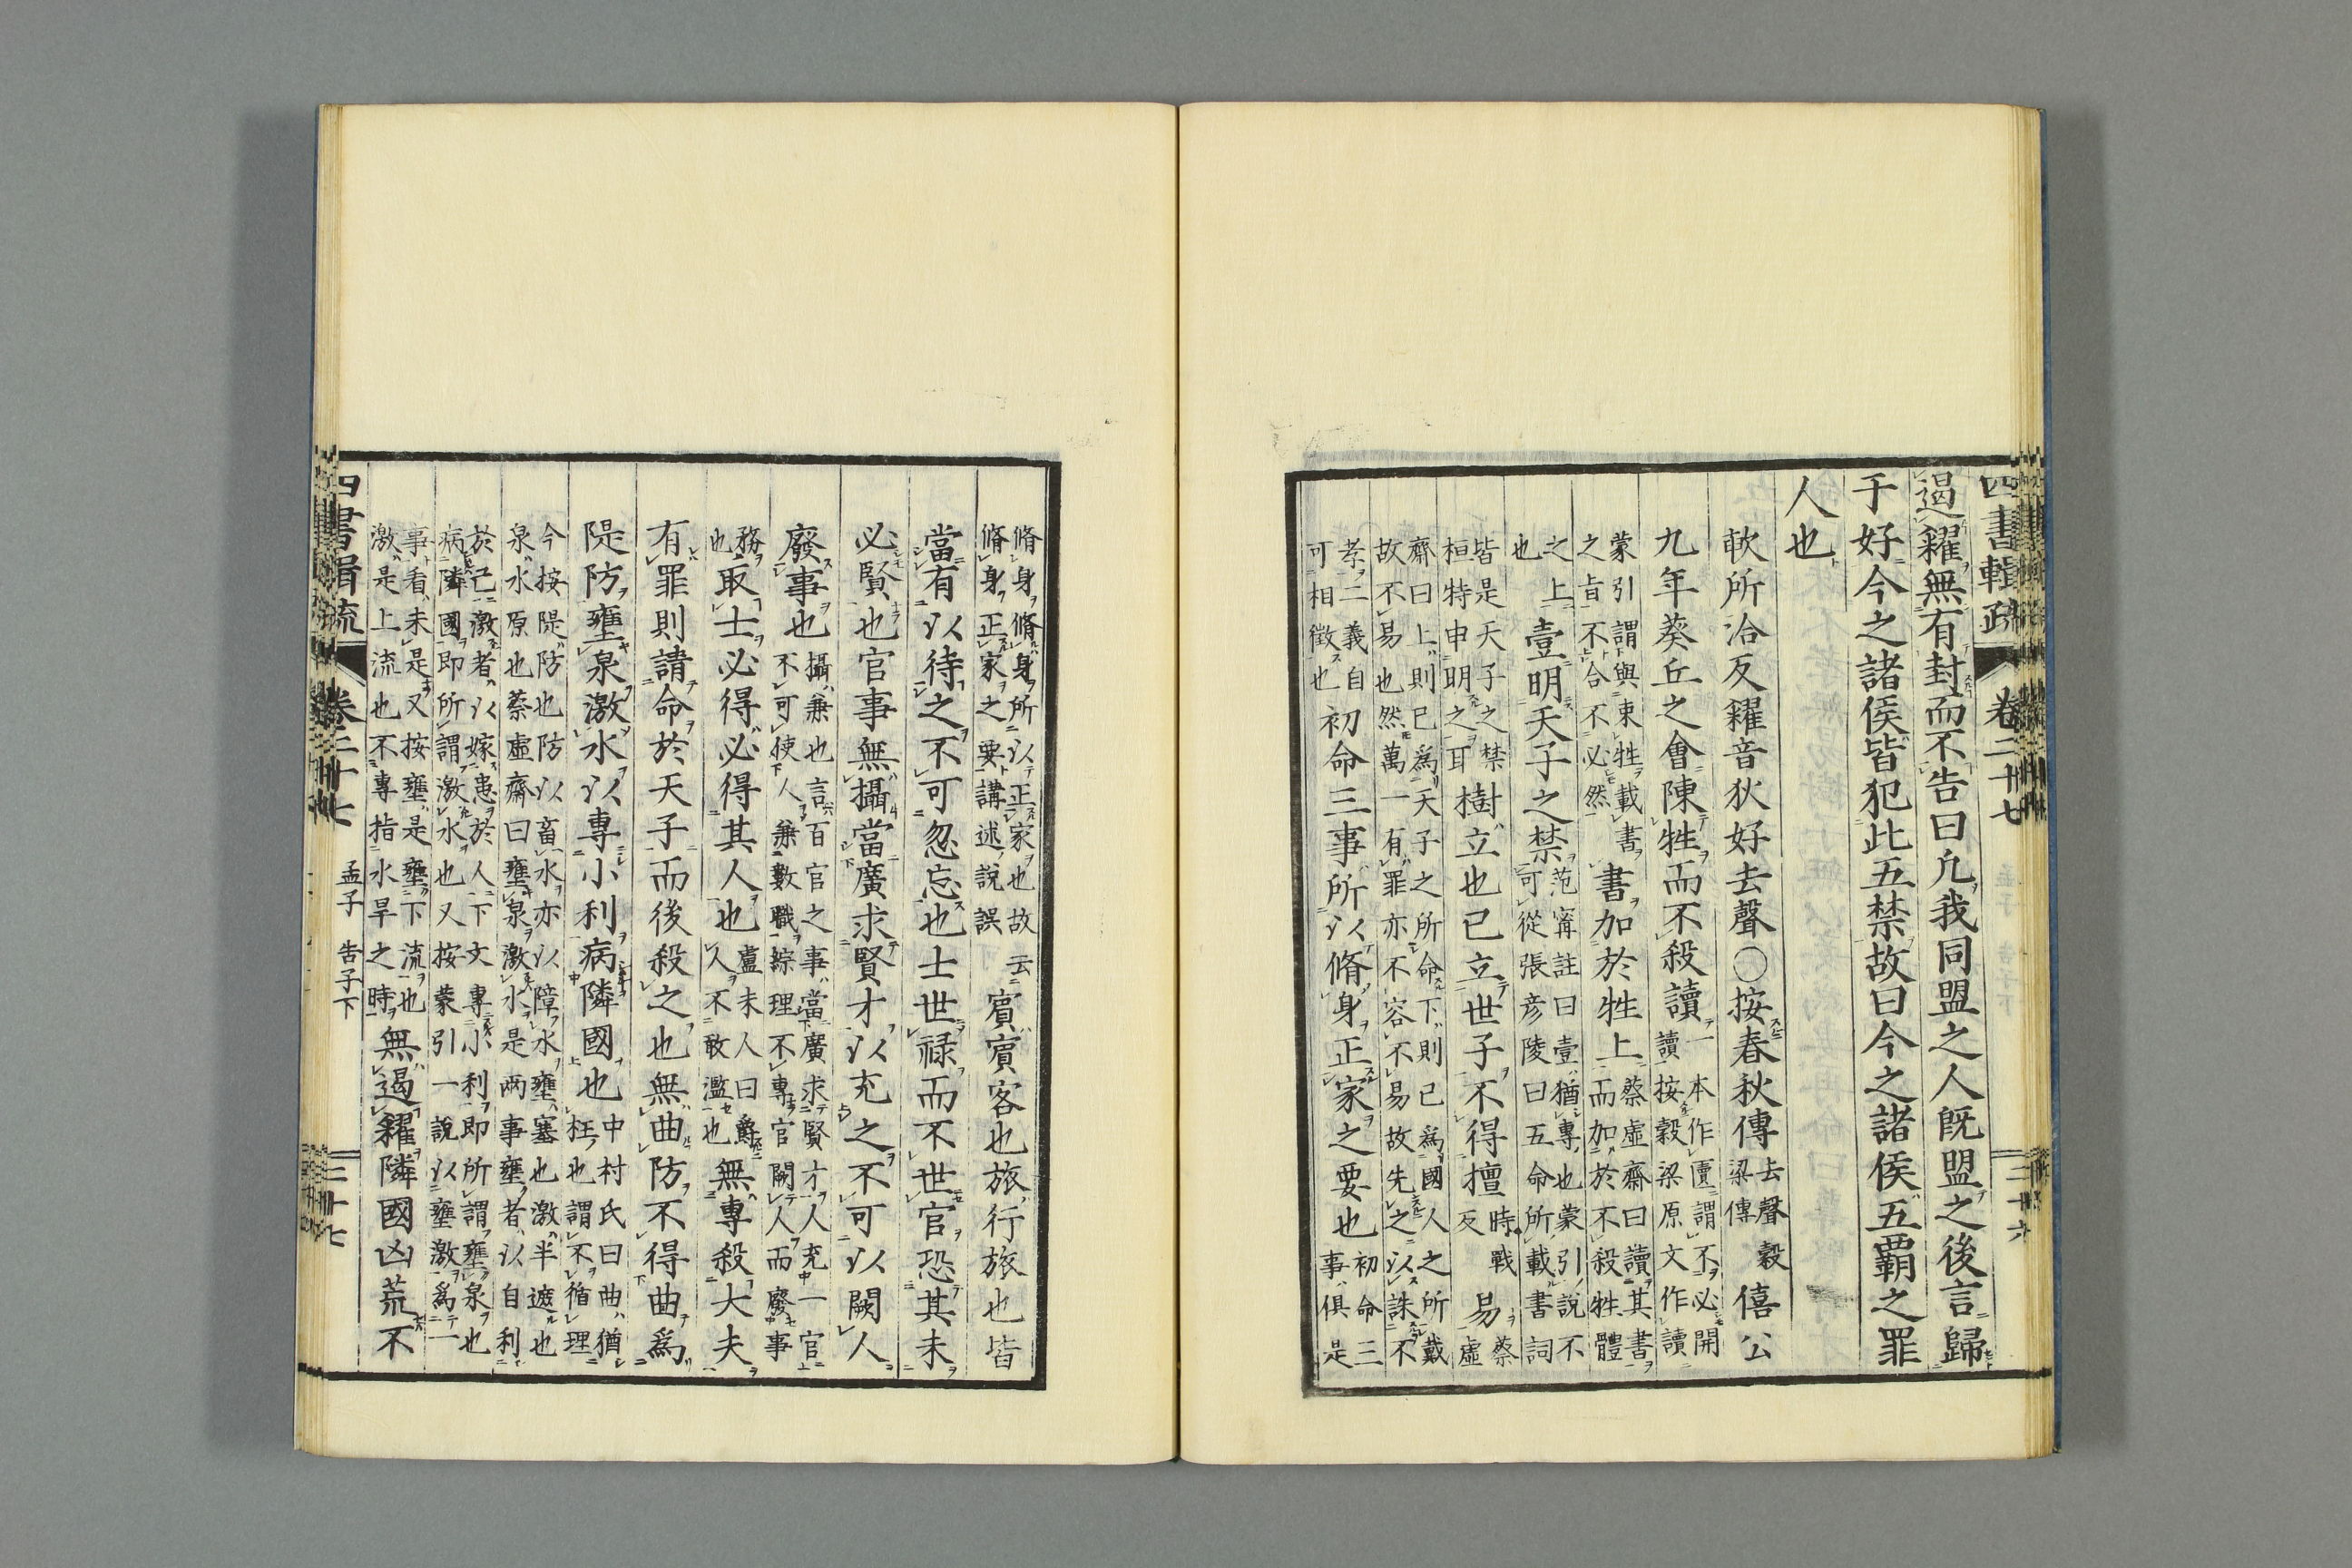 四書輯疏 卷二十七 孟子 告子下 三十六
遏糴無有封而不告曰凡我同盟之人既盟之後言歸
于好今之諸侯皆犯此五禁故曰今之諸侯五覇之罪
人也
歃所洽反糴音狄好去聲○按春秋傳去聲穀梁傳僖公
九年葵丘之會陳牲而不殺讀一本作匵謂不必開讀按穀梁原文作讀
蒙引謂與束牲載書之旨不合不必然書加於牲上蔡虛齋曰讀其書而加於不殺牲體
之上也壹明天子之禁范甯註曰壹猶專也蒙引說不可從張彥陵曰五命所載書詞
皆是天子之禁桓特申明之耳樹立也已立世子不得擅時戰反易蔡虛
齋曰上則已爲天子之所命下則已爲國人之所戴故不易也然萬一有罪亦不容不易故先之以誅不
孝二義自可相徵也初命三事所以脩身正家之要也初命三事俱是
脩身脩身所以正家也故云脩身正家之要講述說誤賓賓客也旅行旅也皆
當有以待之不可忽忘也士世祿而不世官恐其未
必賢也官事無攝當廣求賢才以充之不可以闕人
廢事也攝兼也言百官之事當廣求賢才人充一官不可使人兼數職綜理不專官闕人而廢事
務也取士必得必得其人也盧未人曰爵久不敢濫也無專殺大夫
有罪則請命於天子而後殺之也無曲防不得曲爲
隄防壅泉激水以專小利病隣國也中村氏曰曲猶枉也謂不循理
今按隄防也防以畜水亦以障水壅塞也激半遮也泉水原也蔡虛齋曰壅泉激水是兩事壅者以自利
於己激者以嫁患於人下文專小利即所謂壅泉也病隣國即所謂激水也又按蒙引一說以壅激爲一
事看未是又按壅是壅下流也激是上流也不專指水旱之時無遏糴隣國凶荒不
四書輯疏 卷二十七 孟子 告子下 三十七